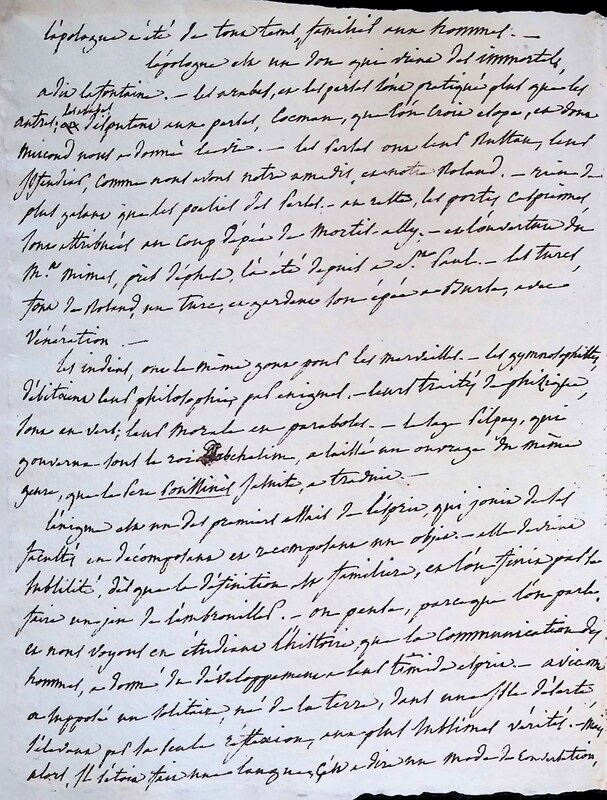 l'apologue a été de tous tems, familier aux hommes. —
l'apologue est un don qui vient des immortels,
a dit lafontaine. — les arabes, et les perses l'ont pratiqué plus que les
autres, les arabes disputent aux perses, Locman, que l'on croit esope, et dont
mircond nous a donné la vie. — les Perses ont leur Rustan, leur
, comme nous avons notre amadis, et notre Roland. — rien de
plus galant que les poesies des Perses. — au reste, les portes caspiennes
sont attribuées au coup d'épée de Mortis-ally. — et l'ouverture du
M.t mimas, près d'éphese, l'a été depuis a S.t Paul. — les turcs,
font de Roland, un turc, et gardent son épée a Burse, avec
vénération. —
les indiens, ont le même gout pour les merveilles. — les gymnosophistes,
débitaient leur philosophie, par enigmes, — leurs traités de phisique,
sont en vers; leur morale en paraboles. — le sage Pilpay, qui
gouverna sous le roi Dabchelim, a laissé un ouvrage du même
genre, que le Pere Poussines jésuite, a traduit. —
L'énigme est un des premiers essais de l'esprit, qui jouit de ses
facultés en décomposant et recomposant un objet. — elle devient
subtilité, dès que la définition est familière, et l'on finit par se
faire un jeu de s'embrouiller. — on pense, parce que l'on parle,
et nous voyons en étudiant l'histoire, que la communication des
hommes, a donné du développement a leur timide esprit. — avicenne
a supposé un solitaire, né de la terre, dans une isle déserte
s'élevant par sa seule réflexion, aux plus sublimes vérités. — Mais
alors, il s'étoit fait une langue, c'est a dire un mode de